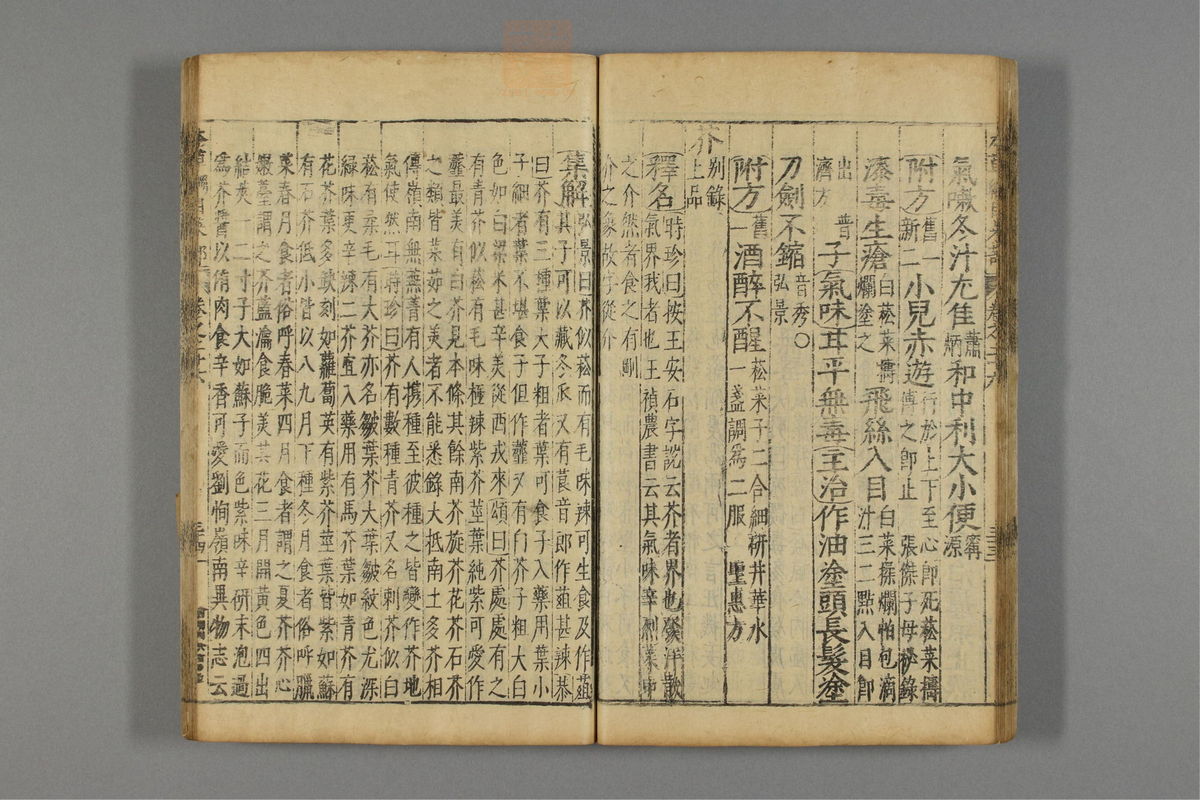 氣嗽冬汁尤佳蕭炳和中利大小便甯源
附方舊一新二小兒赤遊行於上下至心即死菘菜擣傅之即止張傑子母秘錄
漆毒生瘡白菘菜擣爛塗之飛絲入目白菜揉爛帕包滴汁三二點入目即
出普濟方
子氣味甘平無毒主治作油塗頭長髮塗
刀劍不鏽音秀○弘景
附方舊一酒醉不醒菘菜子二合細研井華水一盞調爲二服聖惠方
芥別錄上品
釋名時珍曰按王安石字說云芥者界也發汗散
氣界我者也王禎農書云其氣味辛烈菜中
之介然者食之有剛
介之象故字從介
集解弘景曰芥似菘而有毛味辣可生食及作菹
其子可以藏冬瓜又有莨音郎作菹甚辣恭
曰芥有三種葉大子粗者葉可食子入藥用葉小
子細者葉不堪食子但作虀又有白芥子粗大白
色如白粱米甚辛美從西戎來頌曰芥處處有之
有青芥似菘有毛味極辣紫芥莖葉純紫可愛作
虀最美有白芥見本條其餘南芥旋芥花芥石芥
之類皆菜茹之美者不能悉錄大抵南土多芥相
傳嶺南無蕪菁有人攜種至彼種之皆變作芥地
氣使然耳時珍曰芥有數種青芥又名刺芥似白
菘有柔毛有大芥亦名皺葉芥大葉皺紋色尤深
綠味更辛辣二芥宜入藥用有馬芥葉如青芥有
花芥葉多缺刻如蘿蔔英有紫芥莖葉皆紫如蘇
有石芥低小皆以八九月下種冬月食者俗呼臘
菜春月食者俗呼春菜四月食者謂之夏芥芥心
嫩薹謂之芥藍瀹食脆美其花三月開黃色四出
結莢一二寸子大如蘇子而色紫味辛研末泡過
爲芥醬以侑肉食辛香可愛劉恂嶺南異物志云